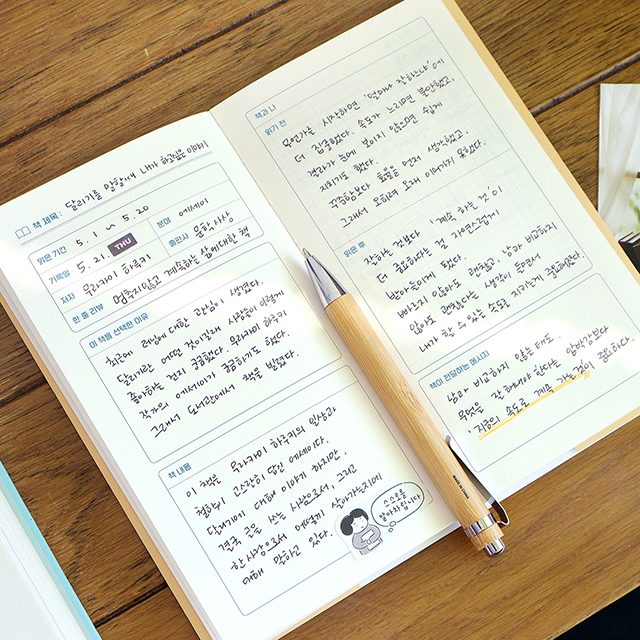 책 제목: 달리기를 말할 때 내가 하고싶은 이야기
읽은 기간 5. 1 ~ 5. 20 분야 에세이
기록일 5. 21. THU 출판사 문학사상
저자 무라카미 하루키
한 줄 리뷰 멈추지않고 계속하는 삶에대한 책
이 책을 선택한 이유
최근에 러닝에 대한 관심이 생겼다.
달리기란 어떤 것이길래 사람들이 이렇게
좋아하는 건지 궁금했다. 무라카미 하루키
작가의 에세이가 궁금하기도 했다.
그래서 도서관에서 책을 빌렸다.
책 내용
이 책은 무라카미 하루키의 일상과
철학이 고스란히 담긴 에세이다.
달리기에 대해 이야기 하지만,
결국 글을 쓰는 사람으로서, 그리고
한 사람으로서 어떻게 살아가는지에
대해 말하고 있다.
스스로를
알아차립니다
책과 나
읽기 전
무언가를 시작하면 '얼마나 잘하느냐'에
더 집중했다. 속도가 느리면 불안했고,
결과가 눈에 보이지 않으면 쉽게
지치기도 했다.
꾸준함보다 효율을 먼저 생각했고,
그래서 오히려 오래 이어가지 못했다.
읽은 후
잘하는 것보다 '계속 하는 것'이
더 중요하다는 걸 자연스럽게
받아들이게 됐다.
빠르지 않아도 괜찮고, 남과 비교하지
않아도 괜찮다는 생각이 들면서
내가 할 수 있는 속도로 지키는게 중요해졌다.
책이 전달하는 메시지
남과 비교하지 않는 태도.
무엇을 잘 해내야 한다는 압박감보다
'지금의 속도로 계속 가는 것'이 중요하다.